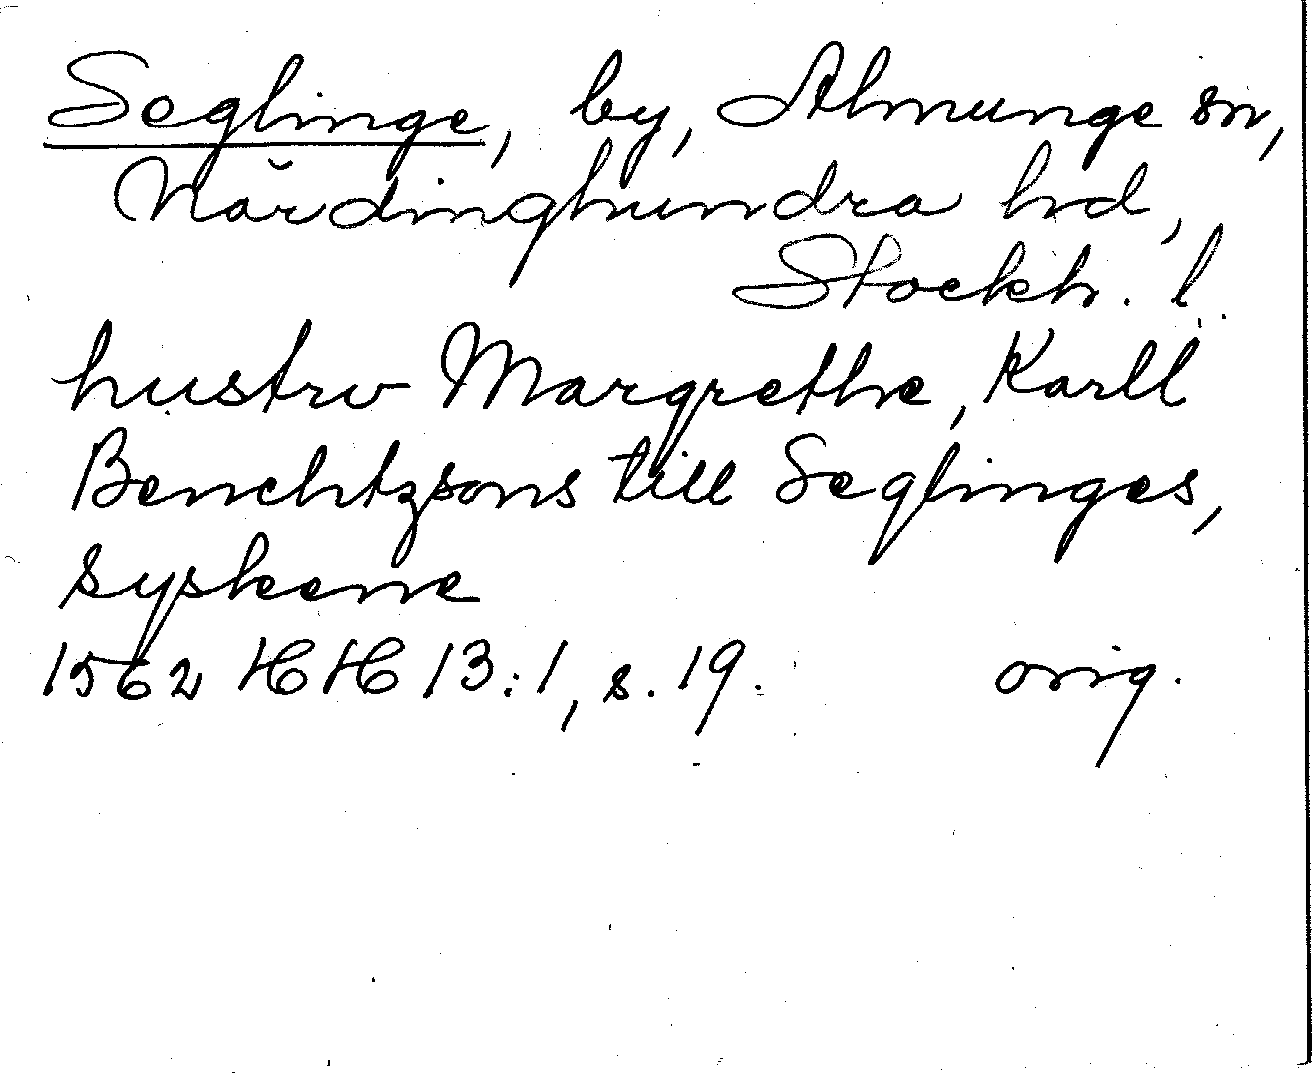 Seglinge, by, Almunge sn,
Närdinghundra hd,
Stockh. l.
hustrv Margrethe, Karll
Benchtzsons till Seglinges,
syskene
1562 HH 13:1, s. 19. orig.